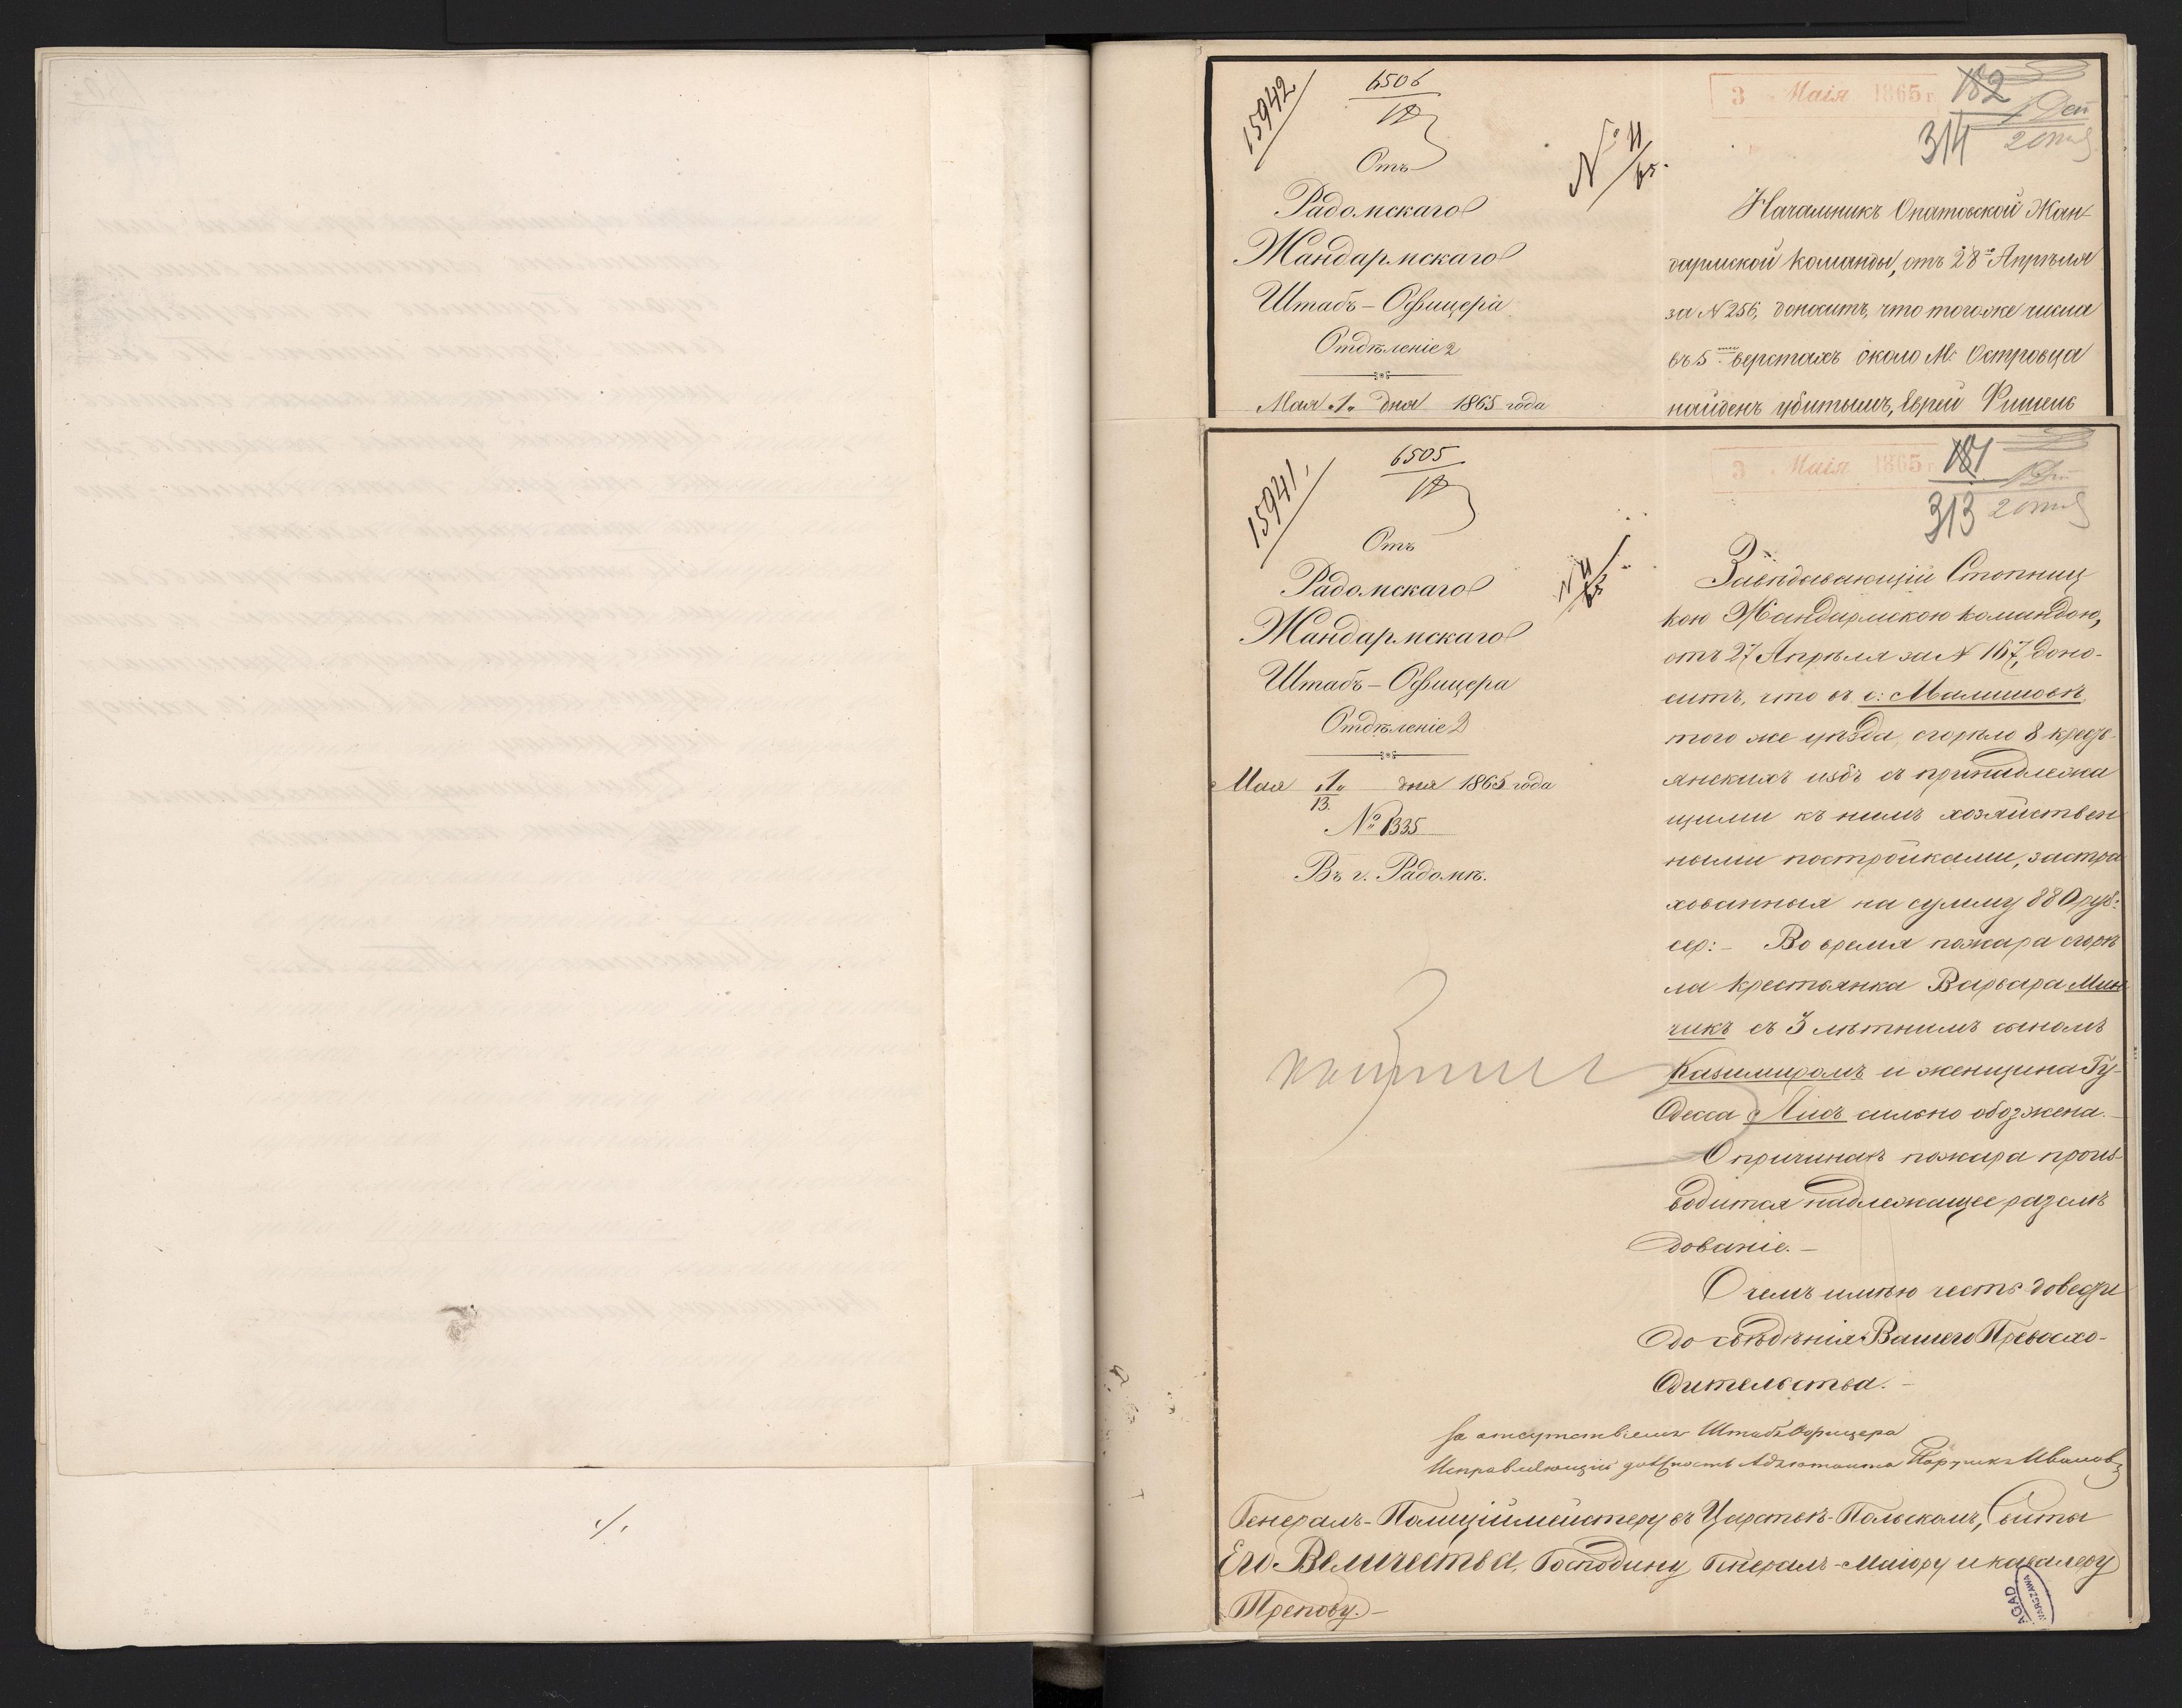 15942
6506
12
Отъ
Радомскаго
Жандармскаго
Штабъ-Офицера
Отдѣленіе 2
Мая „1„ дня 1865 года
№ 11/65.
3 Маія 1865 г.
182
314
Начальникъ Опатовской Жан-
дармской команды, отъ 28го Апрѣля
за № 256, доноситъ, что того-же числа
въ 5ти верстахъ около М. Островца
найденъ убитымъ, Еврей Фишель
15941.
6505
12
Отъ
Радомскаго
Жандармскаго
Штабъ-Офицера
Отдѣленіе 2
Мая „1„ дня 1865 года
13.
№ 1335
Въ г. Радомѣ.
3 Маія 1865 г.
181
313
Завѣдывающій Стопниц
кою Жандармскою командою,
отъ 27 Апрѣля за № 167, доно-
ситъ, что въ
того же уѣзда, сгорѣло 8 кресть-
янскихъ избъ съ принадлежа
щими къ нимъ хозяйствен
ными постройками, застра
хованныя на сумму 880 руб:
сер:- Во время пожара сгорѣ
ла крестьянка Варвара Мин
чикъ съ 3 лѣтнимъ сыномъ
Казимиромъ и женщина Гу-
десса Лисъ сильно обозжена.-
О причинахъ пожара произ-
водится надлежащее разслѣ
дованіе.-
О чемъ имѣю честь довести
до свѣдѣнія Вашего Превосхо-
дительства.-
За отсутствіемъ Штабъ Офицера
Исправляющій должность Адъютанта Поручикъ Ивановъ
Генералъ-Полиціймейстеру въ Царствѣ-Польскомъ, Свиты
Его Величества, Господину Генералъ-Маіору и кавалеру
Трепову.-
AGAD
WARSZAWA
./.